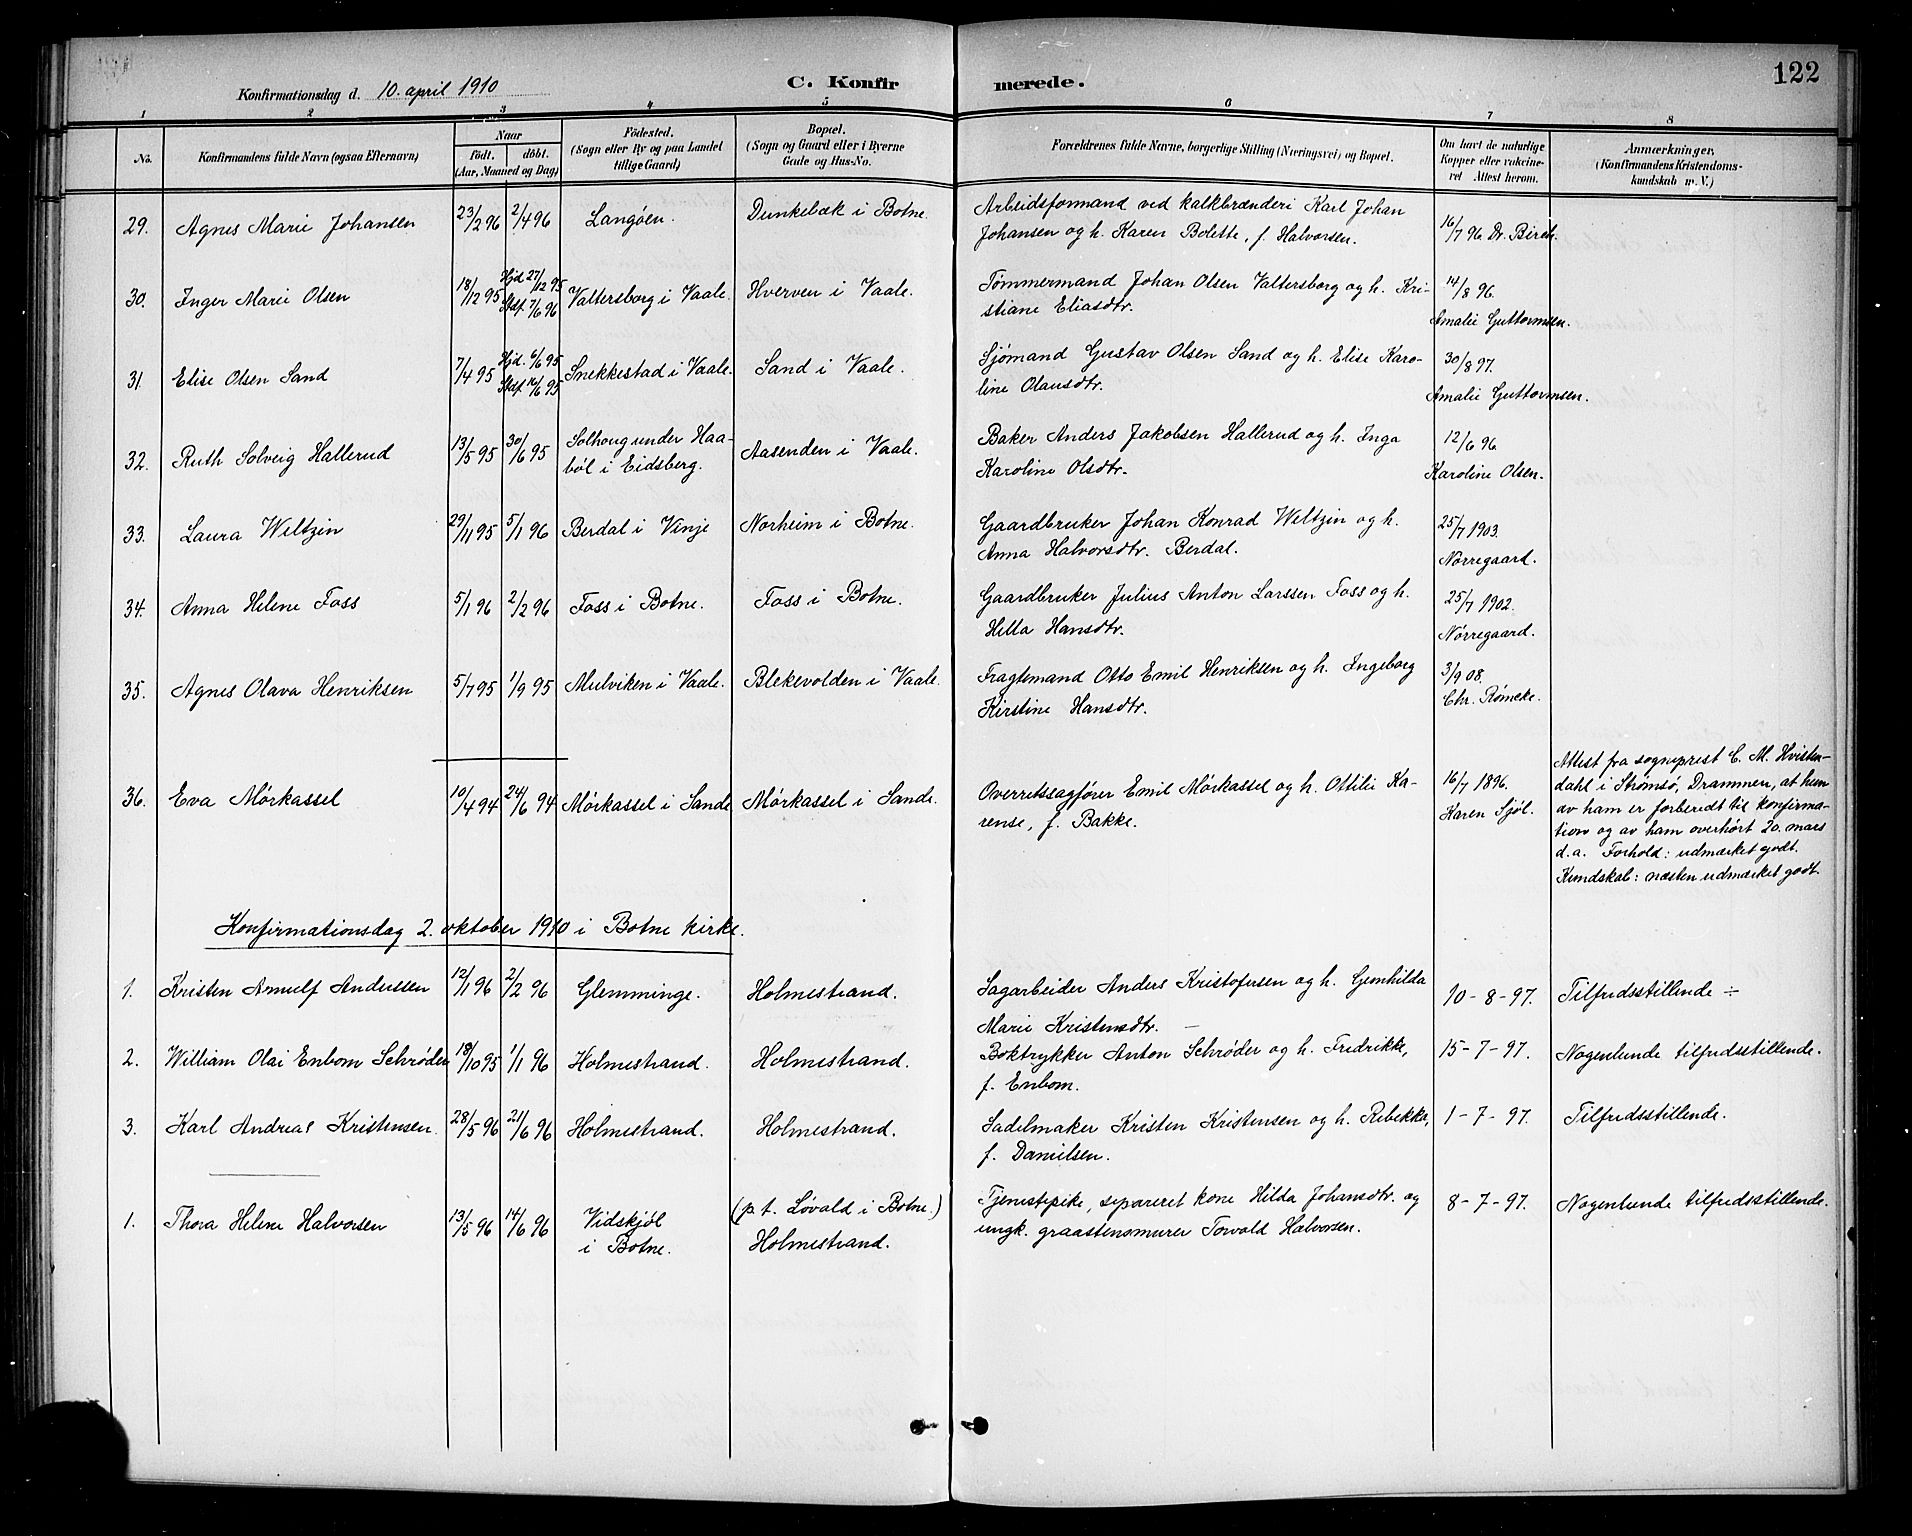 122
Konfirmationsdag d. 10. april 1910
C. Konfirmerede.
1 2 3 4 5 6 7 8
No.
Konfirmandens fulde Navn (ogsaa Efternavn)
Naar
født. døbt.
(Aar, Maaned og Dag)
Fødested.
(Sogn eller By og paa Landet
tillige Gaard)
Bopæl.
(Sogn og Gaard eller i Byerne
Gade og Hus-No.
Forældrenes fulde Navne, borgerlige Stilling (Næringsvei) og Bopæl.
Om havt de naturlige
Kopper eller vakcine-
ret Attest herom.
Anmærkninger,
(Konfirmandens Kristendoms-
kundskab m. V.)
29. Agnes Marie Johansen 23/2 96 2/4 96 Langøen. Dunkebæk i Botne.
Arbeidsformand ved kalkbrænderi Karl Johan
Johansen og h. Karen Bolette, f. Halvorsen.
16/7 96 Dr. Birch.
30. Inger Marie Olsen 18/12 95 Hjd. 27/12 95
Stdf. 7/6 96
Valtersborg i Vaale. Hverven i Vaale.
Tømmermand Johan Olsen Valtersborg og h. Kri-
stiane Eliasdtr.
14/8 96.
Amalie Guttormsen.
31. Elise Olsen Sand 7/4 95 Hjd. 6/6 95
Stdf. 16/6 95
Snekkestad i Vaale. Sand i Vaale.
Sjømand Gustav Olsen Sand og h. Elise Karo-
line Olausdtr.
30/8 97.
Amalie Guttormsen.
32. Ruth Solveig Hallerud 13/5 95 30/6 95
Solhoug under Haa-
bøl i Eidsberg.
Aasenden i Vaale.
Baker Anders Jakobsen Hallerud og h. Inga
Karoline Olsdtr.
12/6 96.
Karoline Olsen.
33. Laura Weltzin 29/11 95 5/1 96 Berdal i Vinje Norheim i Botne.
Gaardbruker Johan Konrad Weltzin og h.
Anna Halvorsdtr. Berdal.
25/7 1903.
Nørregaard.
34. Anna Helene Foss 5/1 96 2/2 96 Foss i Botne. Foss i Botne.
Gaardbruker Julius Anton Larssen Foss og h.
Hella Hansdtr.
25/7 1902.
Nørregaard.
35. Agnes Olava Henriksen 5/7 95 1/9 95 Mulviken i Vaale. Blekevolden i Vaale.
Fragtemand Otto Emil Henriksen og h. Ingeborg
Kirstine Hansdtr.
3/9 08.
Chr. Rømcke.
36. Eva Mørkassel 10/4 94 24/6 94 Mørkassel i Sande Mørkassel i Sande.
Overretssagfører Emil Mørkassel og h. Ottilie Ka-
rense, f. Bakke.
16/7 1896.
Karen Sjøl.
Attest fra sogneprest C. M. Hvisten-
dahl i Strømsø, Drammen, at hun
av ham er forberedt til konfirma-
tion og av ham overhørt 20. mars
d.a. Forhold: udmærket godt.
Kundskab: næsten udmærket godt.
Konfirmationsdag 2. oktober 1910 i Botne kirke.
1. Kristen Arnulf Andersen 12/1 96 2/2 96 Glemminge. Holmestrand.
Sagarbeider Anders Kristofersen og h. Gunhilda
Marie Kristensdtr.
10-8-97. Tilfredsstillende ÷
2. William Olai Enbom Schrøder 18/10 95 1/1 96 Holmestrand. Holmestrand.
Boktrykker Anton Schrøder og h. Fredrikke,
f. Enbom.
15-7-97. Nogenlunde tilfredsstillende.
3. Karl Andreas Kristensen. 28/5 96 21/6 96 Holmestrand. Holmestrand.
Sadelmaker Kristen Kristensen og h. Rebekka,
f. Danielsen.
1-7-97. Tilfredsstillende.
1. Thora Helene Halvorsen 13/5 96 14/6 96 Vidskjøl
i Botne.
(p.t. Løvald i Botne.)
Holmestrand.
Tjenestepike, separeret kone Hilda Johansdtr. og
ungk. graastensmurer Torvald Halvorsen.
8-7-97. Nogenlunde tilfredsstillende.